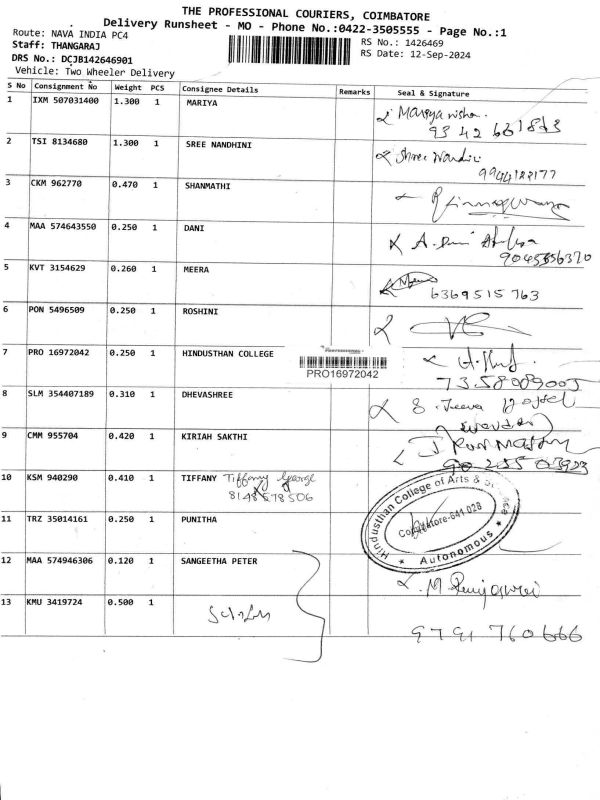 THE PROFESSIONAL COURIERS, COIMBATORE
Delivery Runsheet - MO - Phone No.:0422-3505555 - Page No.:1
Route: NAVA INDIA PC4
Staff: THANGARAJ
DRS No.: DCJB142646901
Vehicle: Two Wheeler Delivery
RS No.: 1426469
RS Date: 12-Sep-2024
S No Consignment No Weight PCS Consignee Details Remarks Seal & Signature
1 IXM 507031400 1.300 1 MARIYA
2 TSI 8134680 1.300 1 SREE NANDHINI
3 CKM 962770 0.470 1 SHANMATHI
4 MAA 574643550 0.250 1 DANI
5 KVT 3154629 0.260 1 MEERA
6369515763
6 PON 5496509 0.250 1 ROSHINI
7 PRO 16972042 0.250 1 HINDUSTHAN COLLEGE
PRO16972042
8 SLM 354407189 0.310 1 DHEVASHREE
9 CMM 955704 0.420 1 KIRIAH SAKTHI
10 KSM 940290 0.410 1 TIFFANY Tiffany George
11 TRZ 35014161 0.250 1 PUNITHA
Hindusthan College of Arts &
Coimbatore-641 028
Autonomous
12 MAA 574946306 0.120 1 SANGEETHA PETER
13 KMU 3419724 0.500 1
9791760666